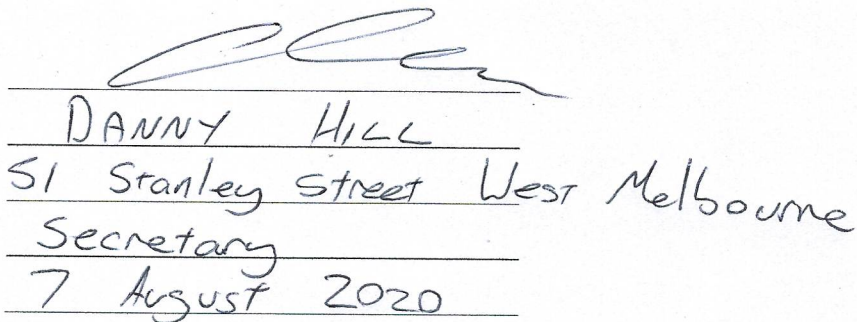 DANNY HILL
51 Stanley Street West Melbourne
Secretary
7 August 2020